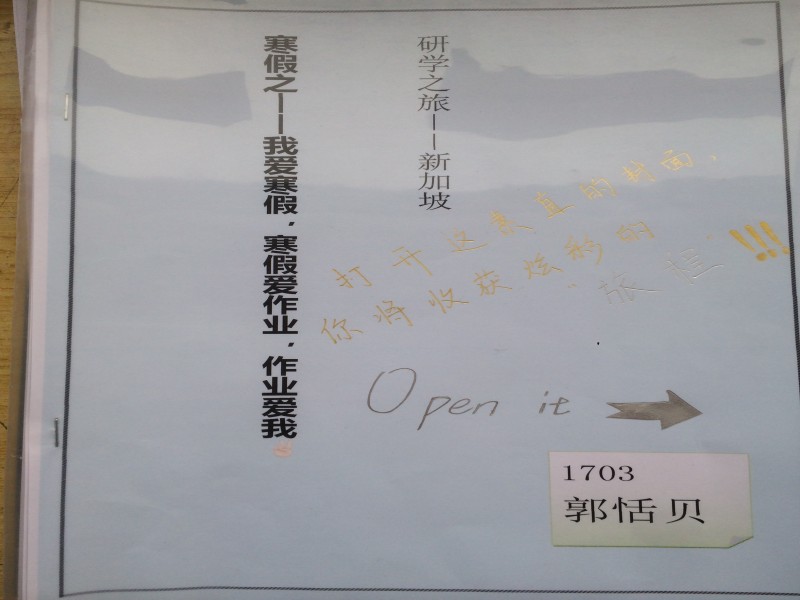 寒假之——我爱寒假，寒假爱作业，作业爱我
研学之旅——新加坡
打开这素真的封面，
你将收获炫彩的
“旅程”!!!
Open it
1703
郭恬贝